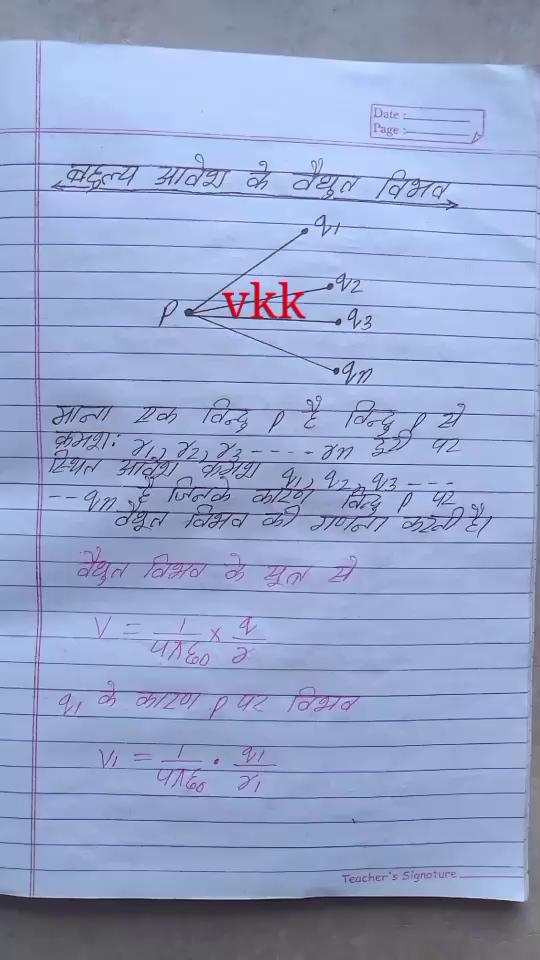 Date :
Page :
बहुल्य आवेश के वैधुत विभव
q1
q2
P vkk
q3
qn
माना एक बिन्दु P है बिन्दु P से
क्रमश: r1, r2, r3 ----- rn दूरी पर
स्थित आवेश क्रमश q1, q2, q3 ---
-- qn है जिनके कारण बिन्दु P पर
वैधुत विभव की गणना करनी है।
वैधुत विभव के सूत्र से
V = 1/4πε0 × q/r
q1 के कारण P पर विभव
V1 = 1/4πε0 · q1/r1
Teacher's Signature